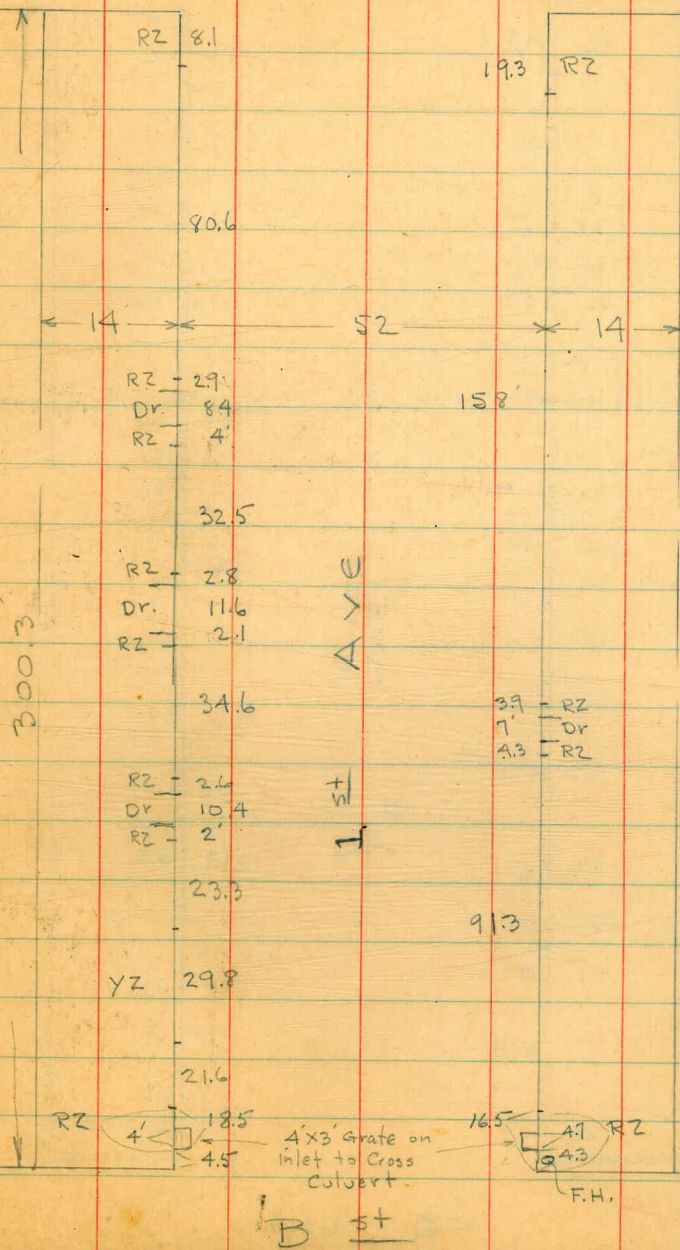 RZ 8.1
19.3 RZ
80.6
14 52 14
RZ 2.9
158'
Dr. 8.4
RZ 4'
32.5
RZ 2.8
Dr. 11.6
RZ 2.1
300.3
1 st Ave
34.6
3.9 RZ
7' Dr
4.3 RZ
RZ 2.6
Dr 10.4
RZ 2'
23.3
91.3
YZ 29.8
21.6
RZ 4' 18.5
4.5
4'X3' Grate on
inlet to Cross
Culvert.
16.5 4.7 RZ
4.3
F.H.
B st